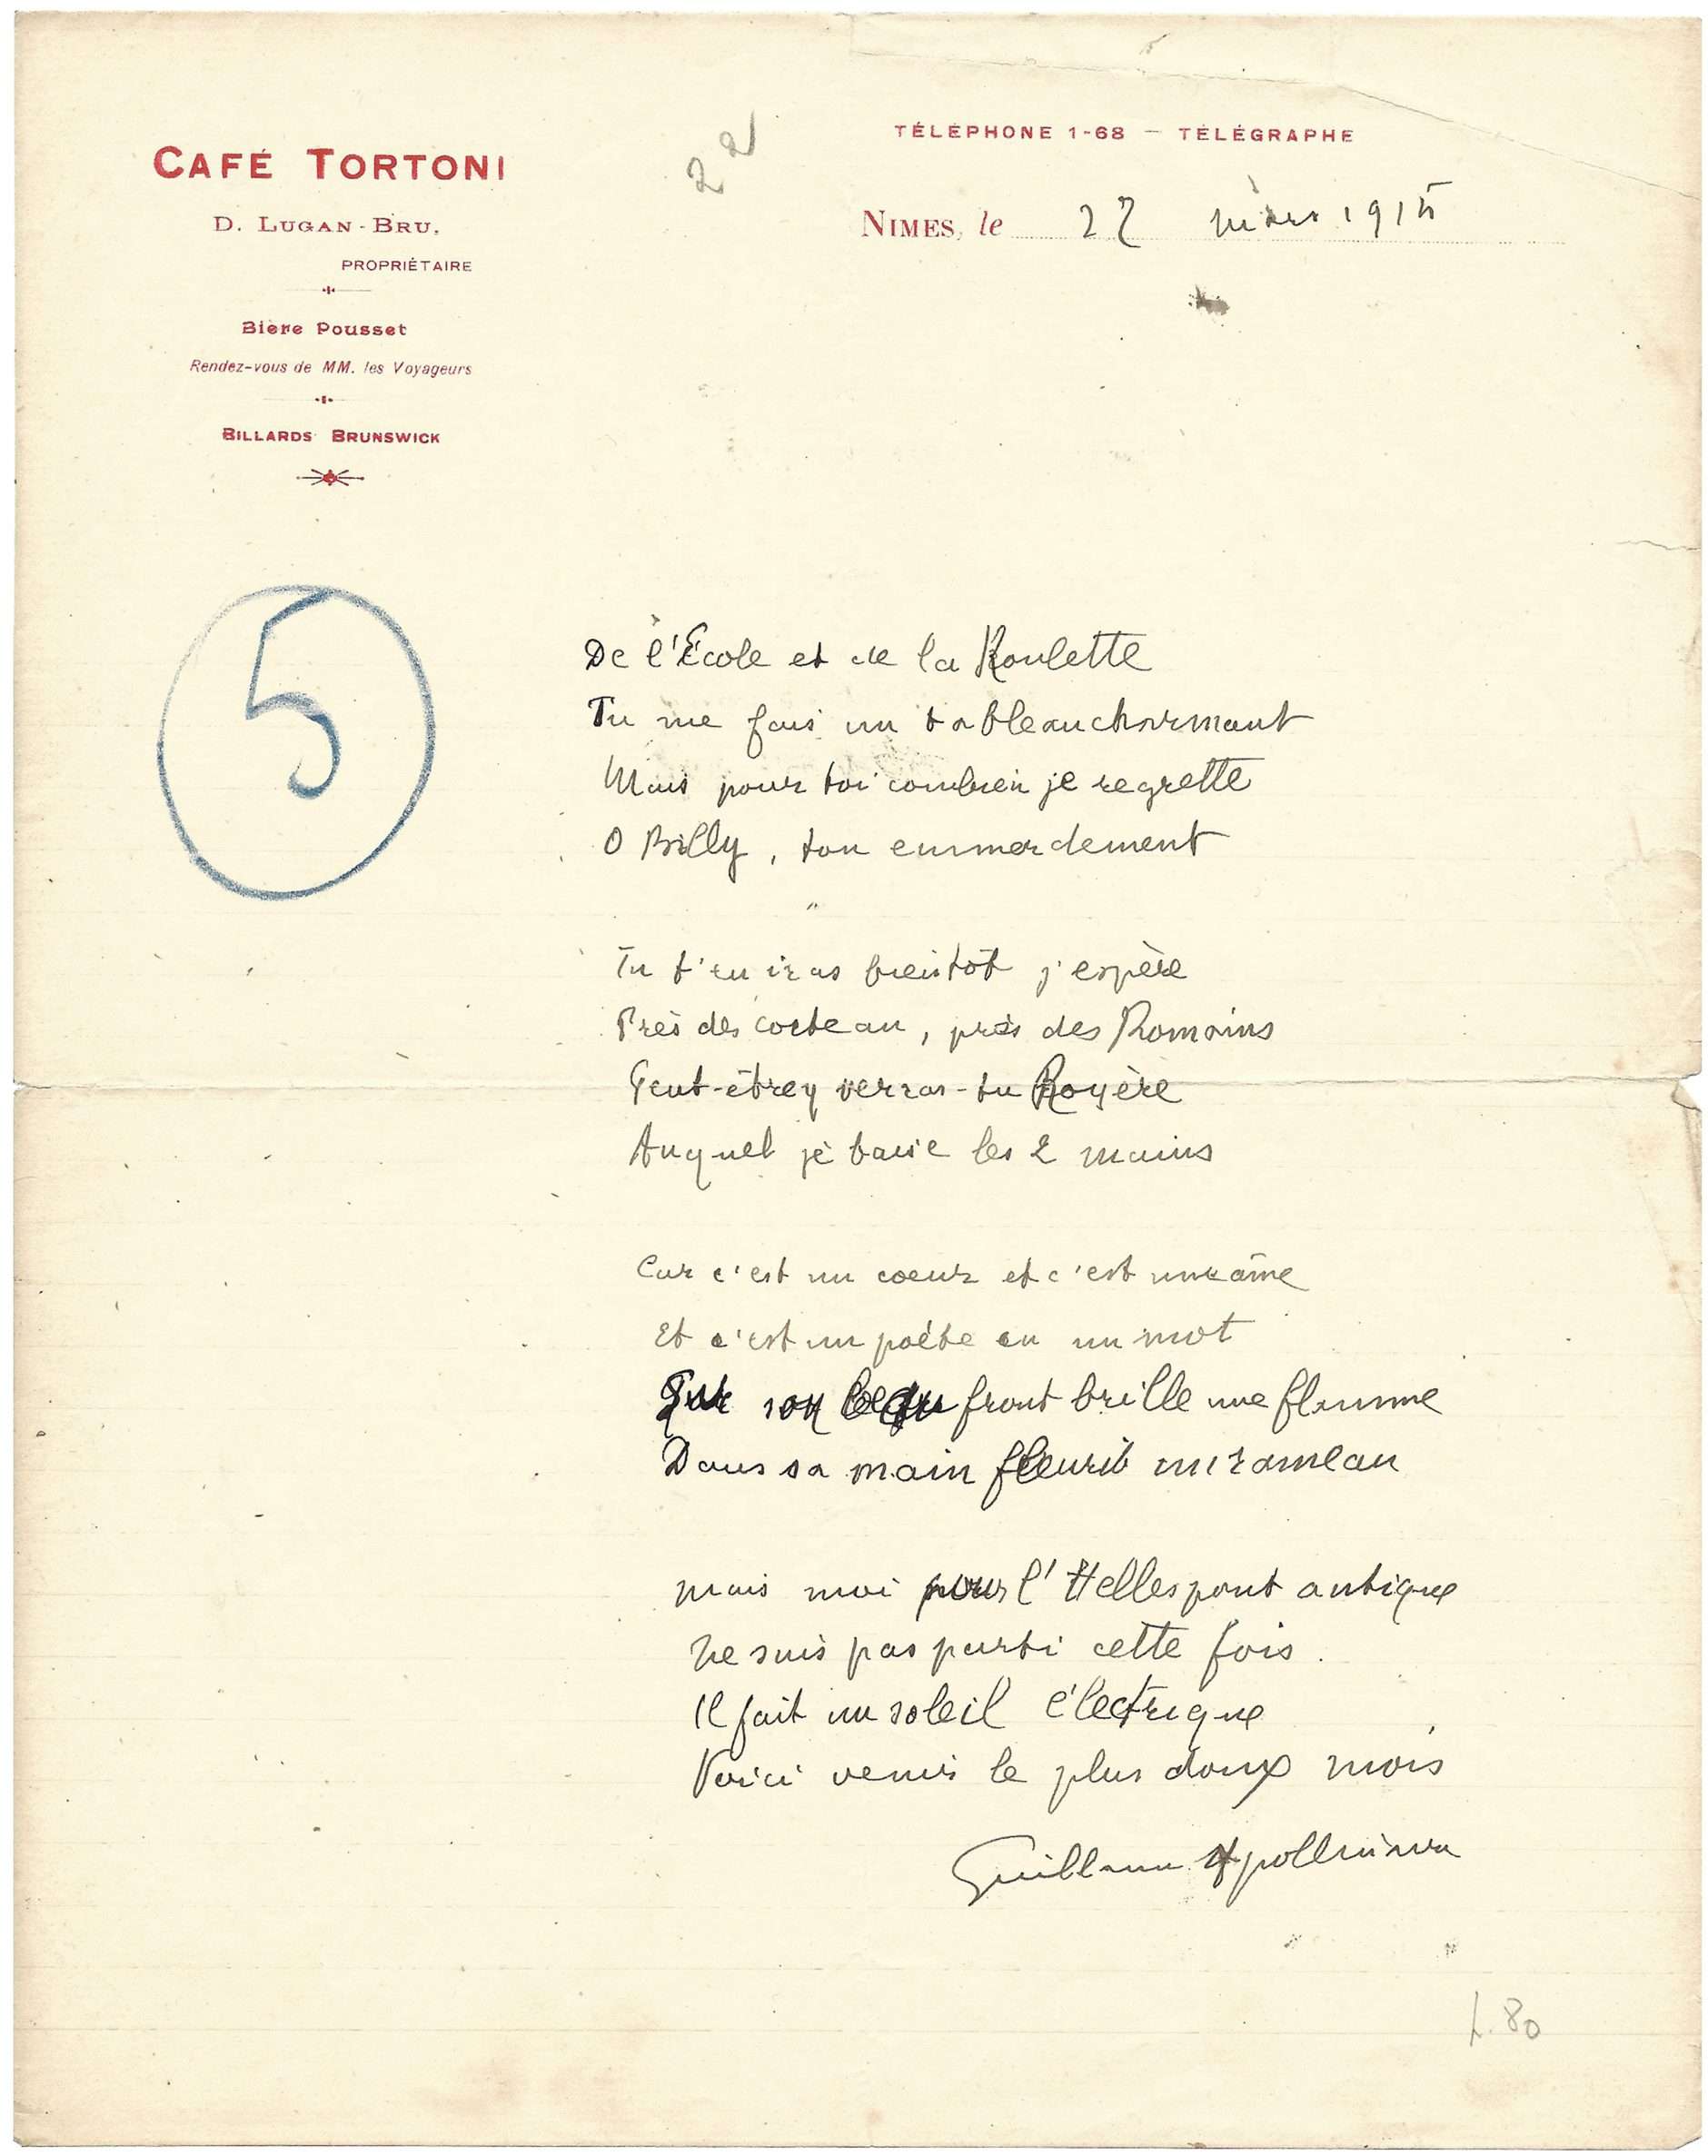 22
TÉLÉPHONE 1-68 — TÉLÉGRAPHE
CAFÉ TORTONI
D. LUGAN-BRU,
PROPRIÉTAIRE
Bière Pousset
Rendez-vous de MM. les Voyageurs
BILLARDS BRUNSWICK
NIMES, le 22 mars 1915
5
De l'École et de la Roulette
Tu me fais un tableau charmant
Mais pour toi combien je regrette
O Billy, ton emmerdement
"
Tu t'en iras bientôt j'espère
Près des coteau, près des Romains
Peut-être y verras-tu Royère
Auquel je baise les 2 mains
Car c'est un cœur et c'est une âme
Et c'est un poète en un mot
Sur son beau front brille une flamme
Dans sa main fleurit un rameau
Mais moi pour l'Hellespont antique
Ne suis pas parti cette fois.
Il fait un soleil électrique
Voici venir le plus doux mois
Guillaume Apollinaire
L. 80